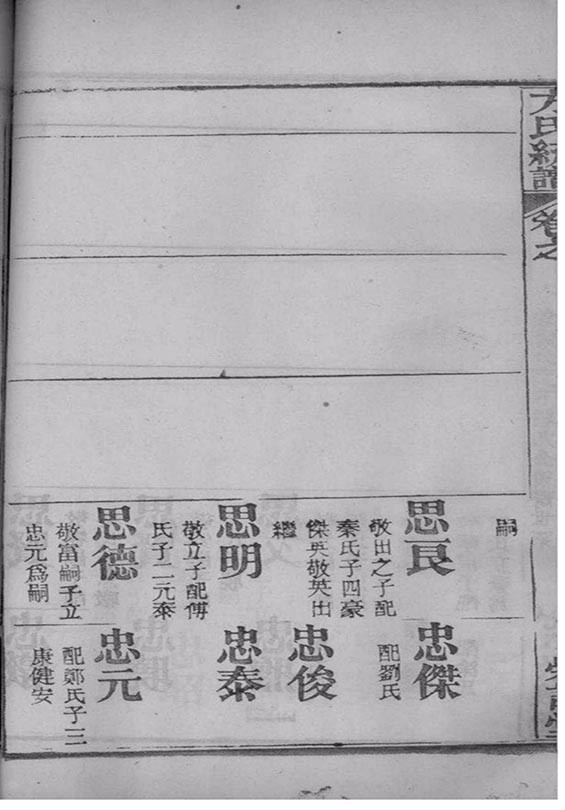 方氏統譜
卷之
嗣
思良
敬出之子配
秦氏子四豪
傑英敬英出
繼
思明
敬立子配傅
氏子二元泰
思德
敬富嗣子立
忠元爲嗣
忠傑
配劉氏
忠俊
忠泰
忠元
配鄭氏子三
康健安